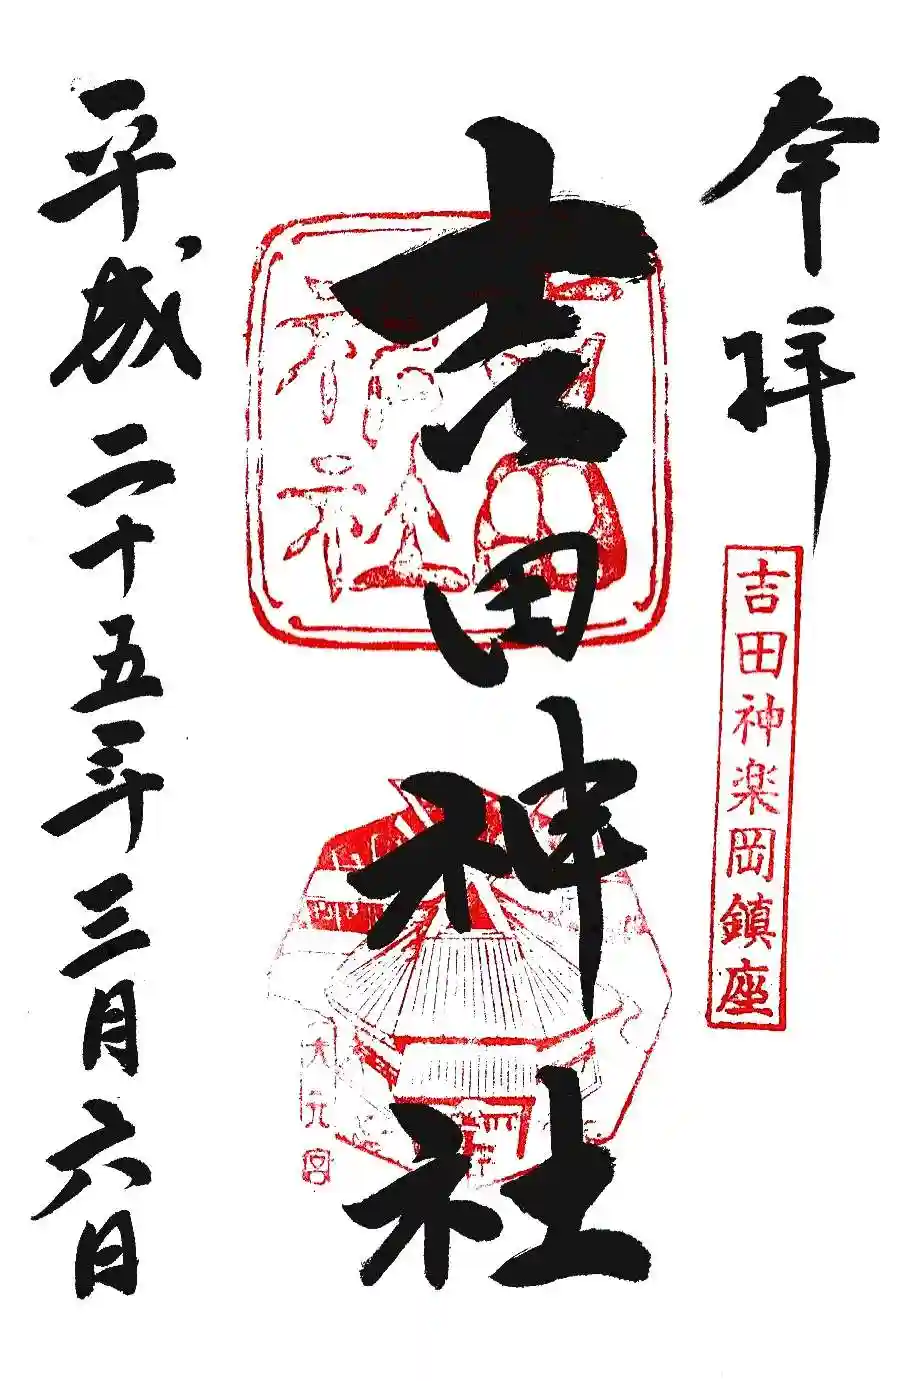 奉拝
吉田神楽岡鎮座
吉田神社
吉田神社
大元宮
平成二十五年三月六日